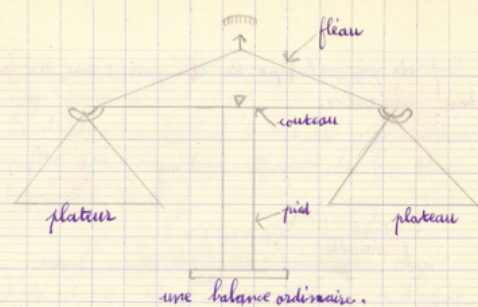 fléau
couteau
plateur
pied
plateau
une balance ordinaire.